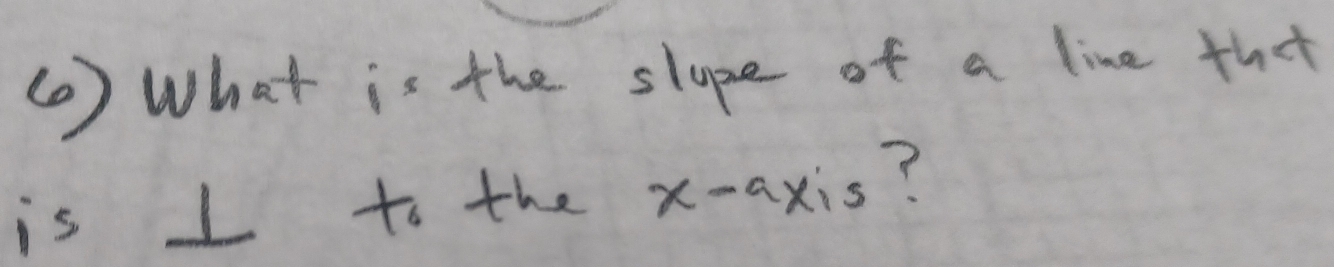 6) What is the slope of a line that
is ⊥ to the x-axis?